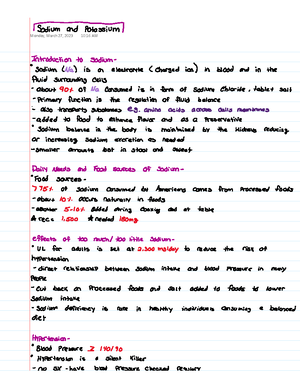 Sodium and Potassium
Monday, March 27, 2023 10:54 AM
Introduction to Sodium-
* Sodium (Na) is an electrolyte (charged ion) in blood and in the
fluid surrounding cells
- about 90% of Na consumed is in form of Sodium Chloride, tablet salt
- Primary function is the regulation of fluid balance
- also transports substances e.g. amino acids across cells membranes
- added to food to enhance flavor and as a preservative
* Sodium balance in the body is maintained by the kidneys reducing
or increasing sodium excretion as needed
- smaller amounts lost in stool and sweat
Daily Needs and Food sources of Sodium-
* Food sources-
775% of sodium consumed by Americans comes from processed foods
- about 10% occurs naturally in foods
- another 5-10% added during cooking and at table
1,500 needed 180mg
effects of too much/too little Sodium-
* UL for adults is set at 2,300 mg/day to reduce the risk of
hypertension
- direct relationship between sodium intake and blood pressure in many
people
- cut back on processed foods and salt added to foods to lower
Sodium intake
- Sodium deficiency is rare in healthy individuals consuming a balanced
diet
Hypertension-
* Blood Pressure ≥ 140/90
* Hypertension is a silent killer
- no
- have blood pressure checked regularly